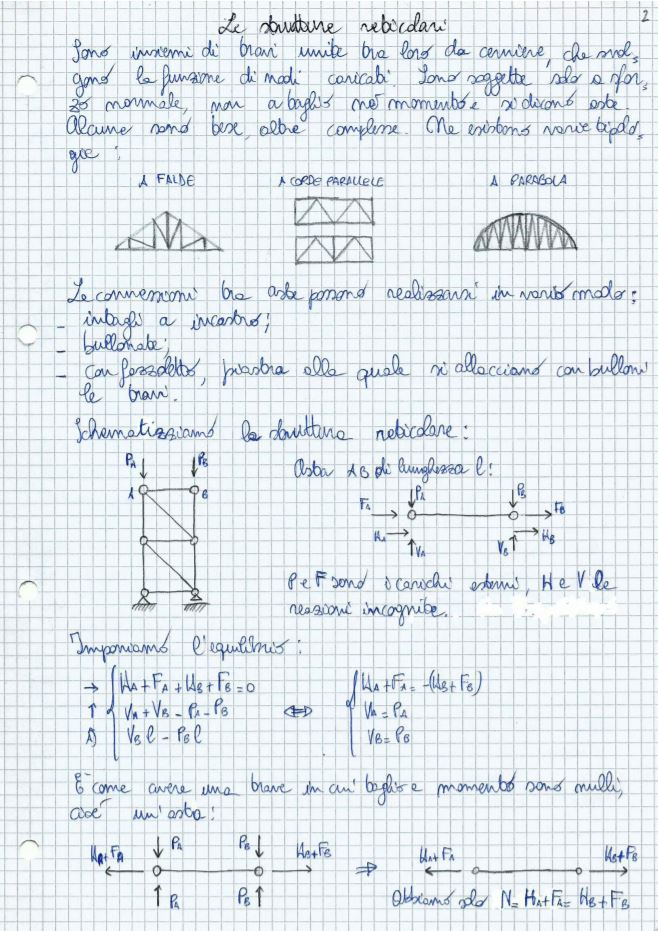 2
Le strutture reticolari
Sono insiemi di travi unite tra loro da cerniere, che svol-
gono la funzione di nodi caricati. Sono soggette solo a sfor-
zo normale, non a taglio né momento e si dicono aste.
Alcune sono tese, altre compresse. Ne esistono varie tipolo-
gie:
A FALDE
A CORDE PARALLELE
A PARABOLA
Le connessioni tra aste possono realizzarsi in vario modo:
- intagli a incastro;
- bullonate;
- con fazzoletto, piastra alla quale si allacciano con bulloni
le travi.
Schematizziamo la struttura reticolare:
PA PB
A B
Asta AB di lunghezza l:
FA PA PB FB
HA VA VB HB
P e F sono i carichi esterni, H e V le
reazioni incognite.
Imponiamo l'equilibrio:
→ HA + FA + HB + FB = 0
↑ VA + VB - PA - PB
A) VB l - PB l
⇔
HA + FA = -(HB + FB)
VA = PA
VB = PB
È come avere una trave in cui taglio e momento sono nulli,
cioè un'asta:
HA+FA PA PB HB+FB
PA PB
⇒
HA+FA HB+FB
Abbiamo solo N = HA + FA = HB + FB